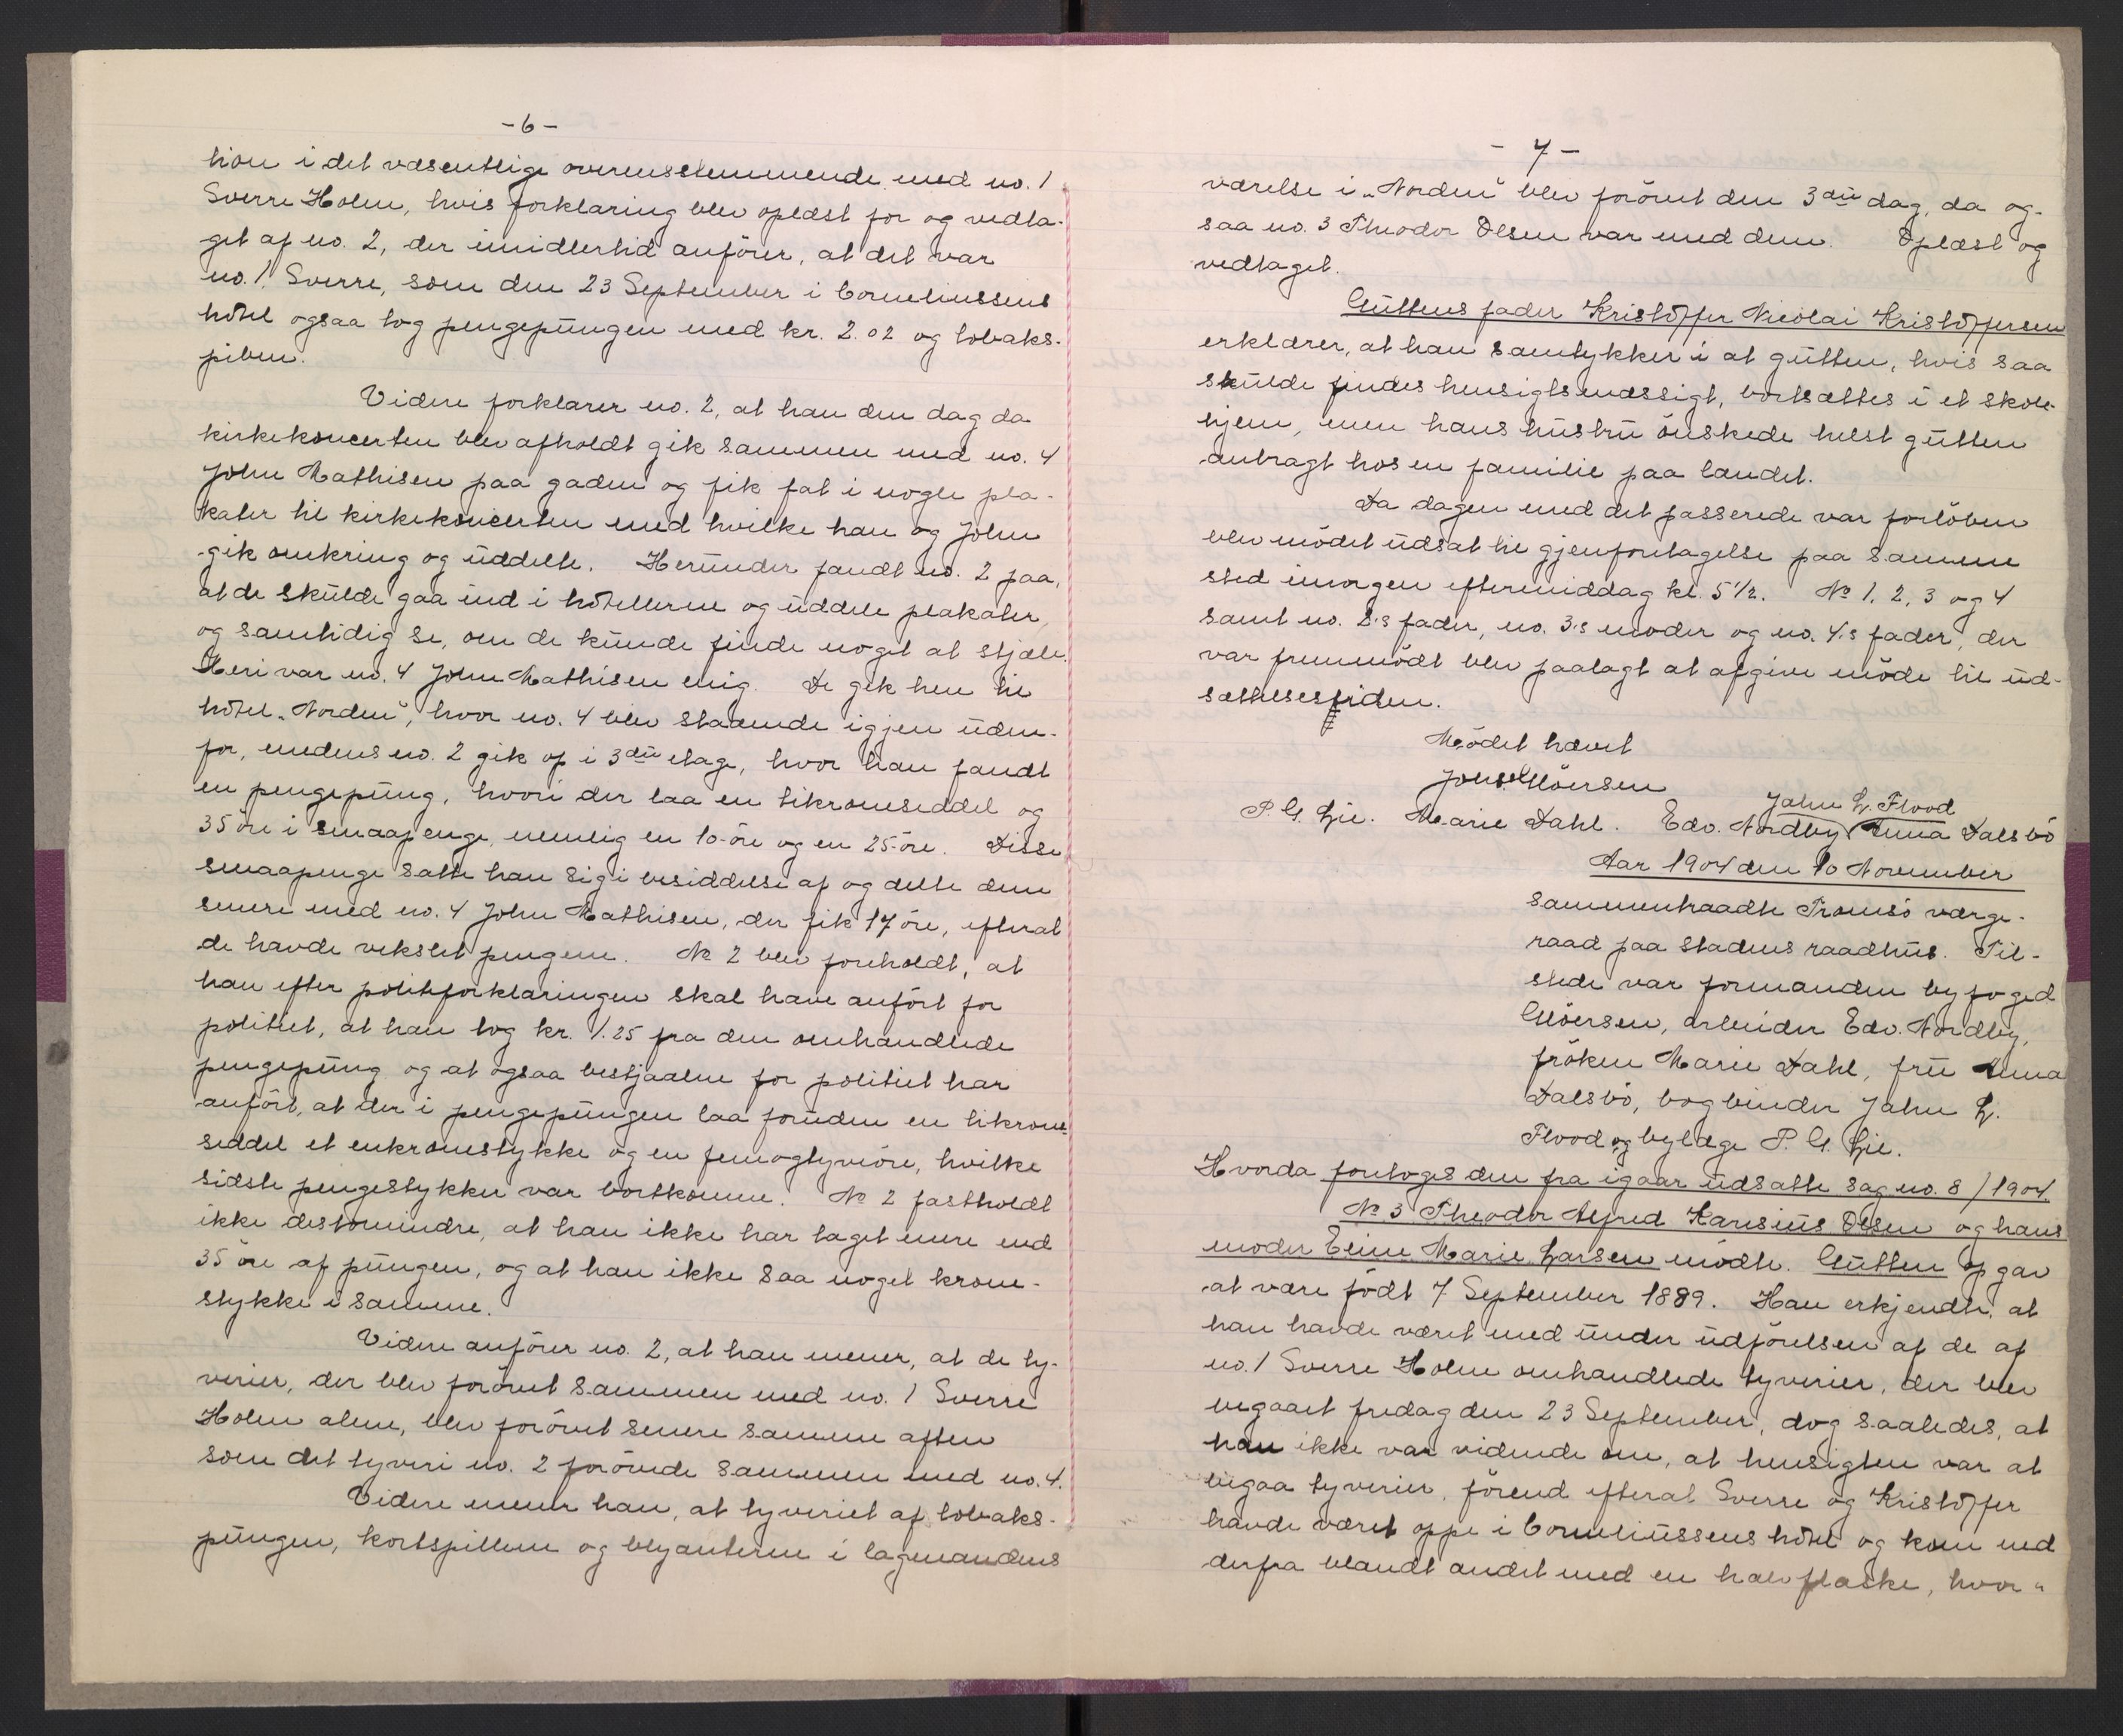 -6-
tion i det væsentlige overensstemmende med no. 1
Sverre Holm, hvis forklaring blev oplæst for og vedta-
get af no. 2, der imidlertid anförer, at det var
no. 1 Sverre, som den 23 September i Corneliussens
hôtel ogsaa tog pengepüngen med kr. 2.02 og tobaks-
piben.
Videre forklarer no. 2, at han den dag da
kirkekoncerten blev afholdt gik sammen med no. 4
John Mathisen paa gaden og fik fat i nogle pla-
kater til kirkekoncerten med hvilke han og John
gik omkring og üddelte. Heründer fandt no. 2 paa,
at de skülde gaa ind i hôtellerne og üddele plakater,
og samtidig se, om de künde finde noget at stjæle.
Heri var no. 4 John Mathisen enig. De gik hen til
hôtel „Norden", hvor no. 4 blev staaende igjen üden-
for, medens no. 2 gik op i 3die etage, hvor han fandt
en pengepüng, hvori der laa en tikroneseddel og
35 öre i smaapenge, nemlig en 10-öre og en 25-öre. Disse
smaapenge satte han sig i besiddelse af og delte dem
senere med no. 4 John Mathisen, der fik 17 öre, efterat
de havde vekslet pengene. No 2 blev foreholdt, at
han efter politiforklaringen skal have anfört for
politiet, at han tog kr. 1.25 fra den omhandlede
pengepüng og at ogsaa bestjaalne for politiet har
anfört, at der i pengepüngen laa foruden en tikrone-
seddel et enkronestykke og en femogtyveöre, hvilke
sidste pengestykker var bortkomne. No 2 fastholdt
ikke destomindre, at han ikke har taget mere end
35 öre af püngen, og at han ikke saa noget krone-
stykke i samme.
Videre anförer no. 2, at han mener, at de ty-
verier, der blev forövet sammen med no. 1 Sverre
Holm alene, blev forövet senere samme aften
som det tyveri no. 2 forövede sammen med no. 4.
Videre mener han, at tyveriet af tobaks-
püngen, kortspillene og blyanterne i lagmandens
- 7 -
værelse i „Norden" blev forövet den 3die dag, da og-
saa no. 3 Theodor Olsen var med dem. Oplæst og
vedtaget.
Güttens fader Kristoffer Nicolai Kristoffersen
erklærer, at han samtykker i at gütten, hvis saa
skülde findes hensigtsmæssigt, bortsættes i et skole-
hjem, men hans hüstrü önskede helst gütten
anbragt hos en familie paa landet.
Da dagen med det passerede var forlöben
blev mödet üdsat til gjenforetagelse paa samme
sted imorgen eftermiddag kl. 5 1/2. No 1, 2, 3 og 4
samt no. 2's fader, no. 3's moder og no. 4's fader, der
var fremmödt blev paalagt at afgive möde til üd-
sættelsestiden.
Mödet hævet
P. G. Lie. Marie Dahl. Edv. Nordby Anna Dalsbö
John L. Flood
Aar 1904 den 10 November
sammentraadte Tromsö værge-
raad paa stadens raadhüs. Til-
stede var formanden byfoged
Mörsen, arbeider Edv. Nordby,
fröken Marie Dahl, frü Anna
Dalsbö, bogbinder John L.
Flood og bylæge P. G. Lie.
Hvorda foretoges den fra igaar üdsatte sag no. 8/1904.
No 3 Theodor Alfred Karisiüs Olsen og hans
moder Eline Marie Larsen mödte. Gütten opgav
at være födt 7 September 1889. Han erkjendte, at
han havde været med ünder üdförelsen af de af
no. 1 Sverre Holm omhandlede tyverier, der blev
begaaet fredag den 23 September, dog saaledes, at
han ikke var vidende om, at hensigten var at
begaa tyverier, förend efterat Sverre og Kristoffer
havde været oppe i Corneliüssens hôtel og kom ned
derfra blandt andet med en halvflaske, hvor-